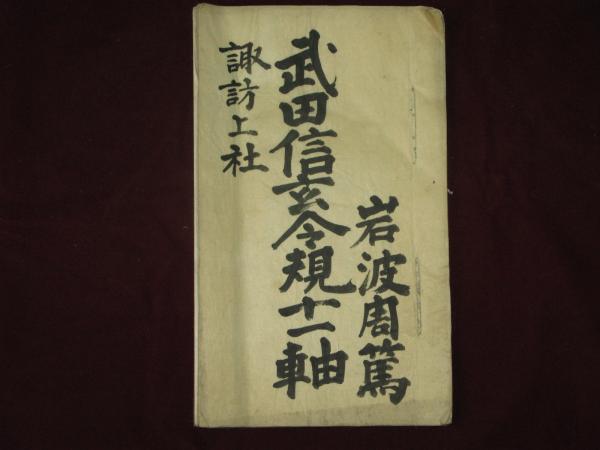 岩波周篤
武田信玄令規十一軸
諏訪上社